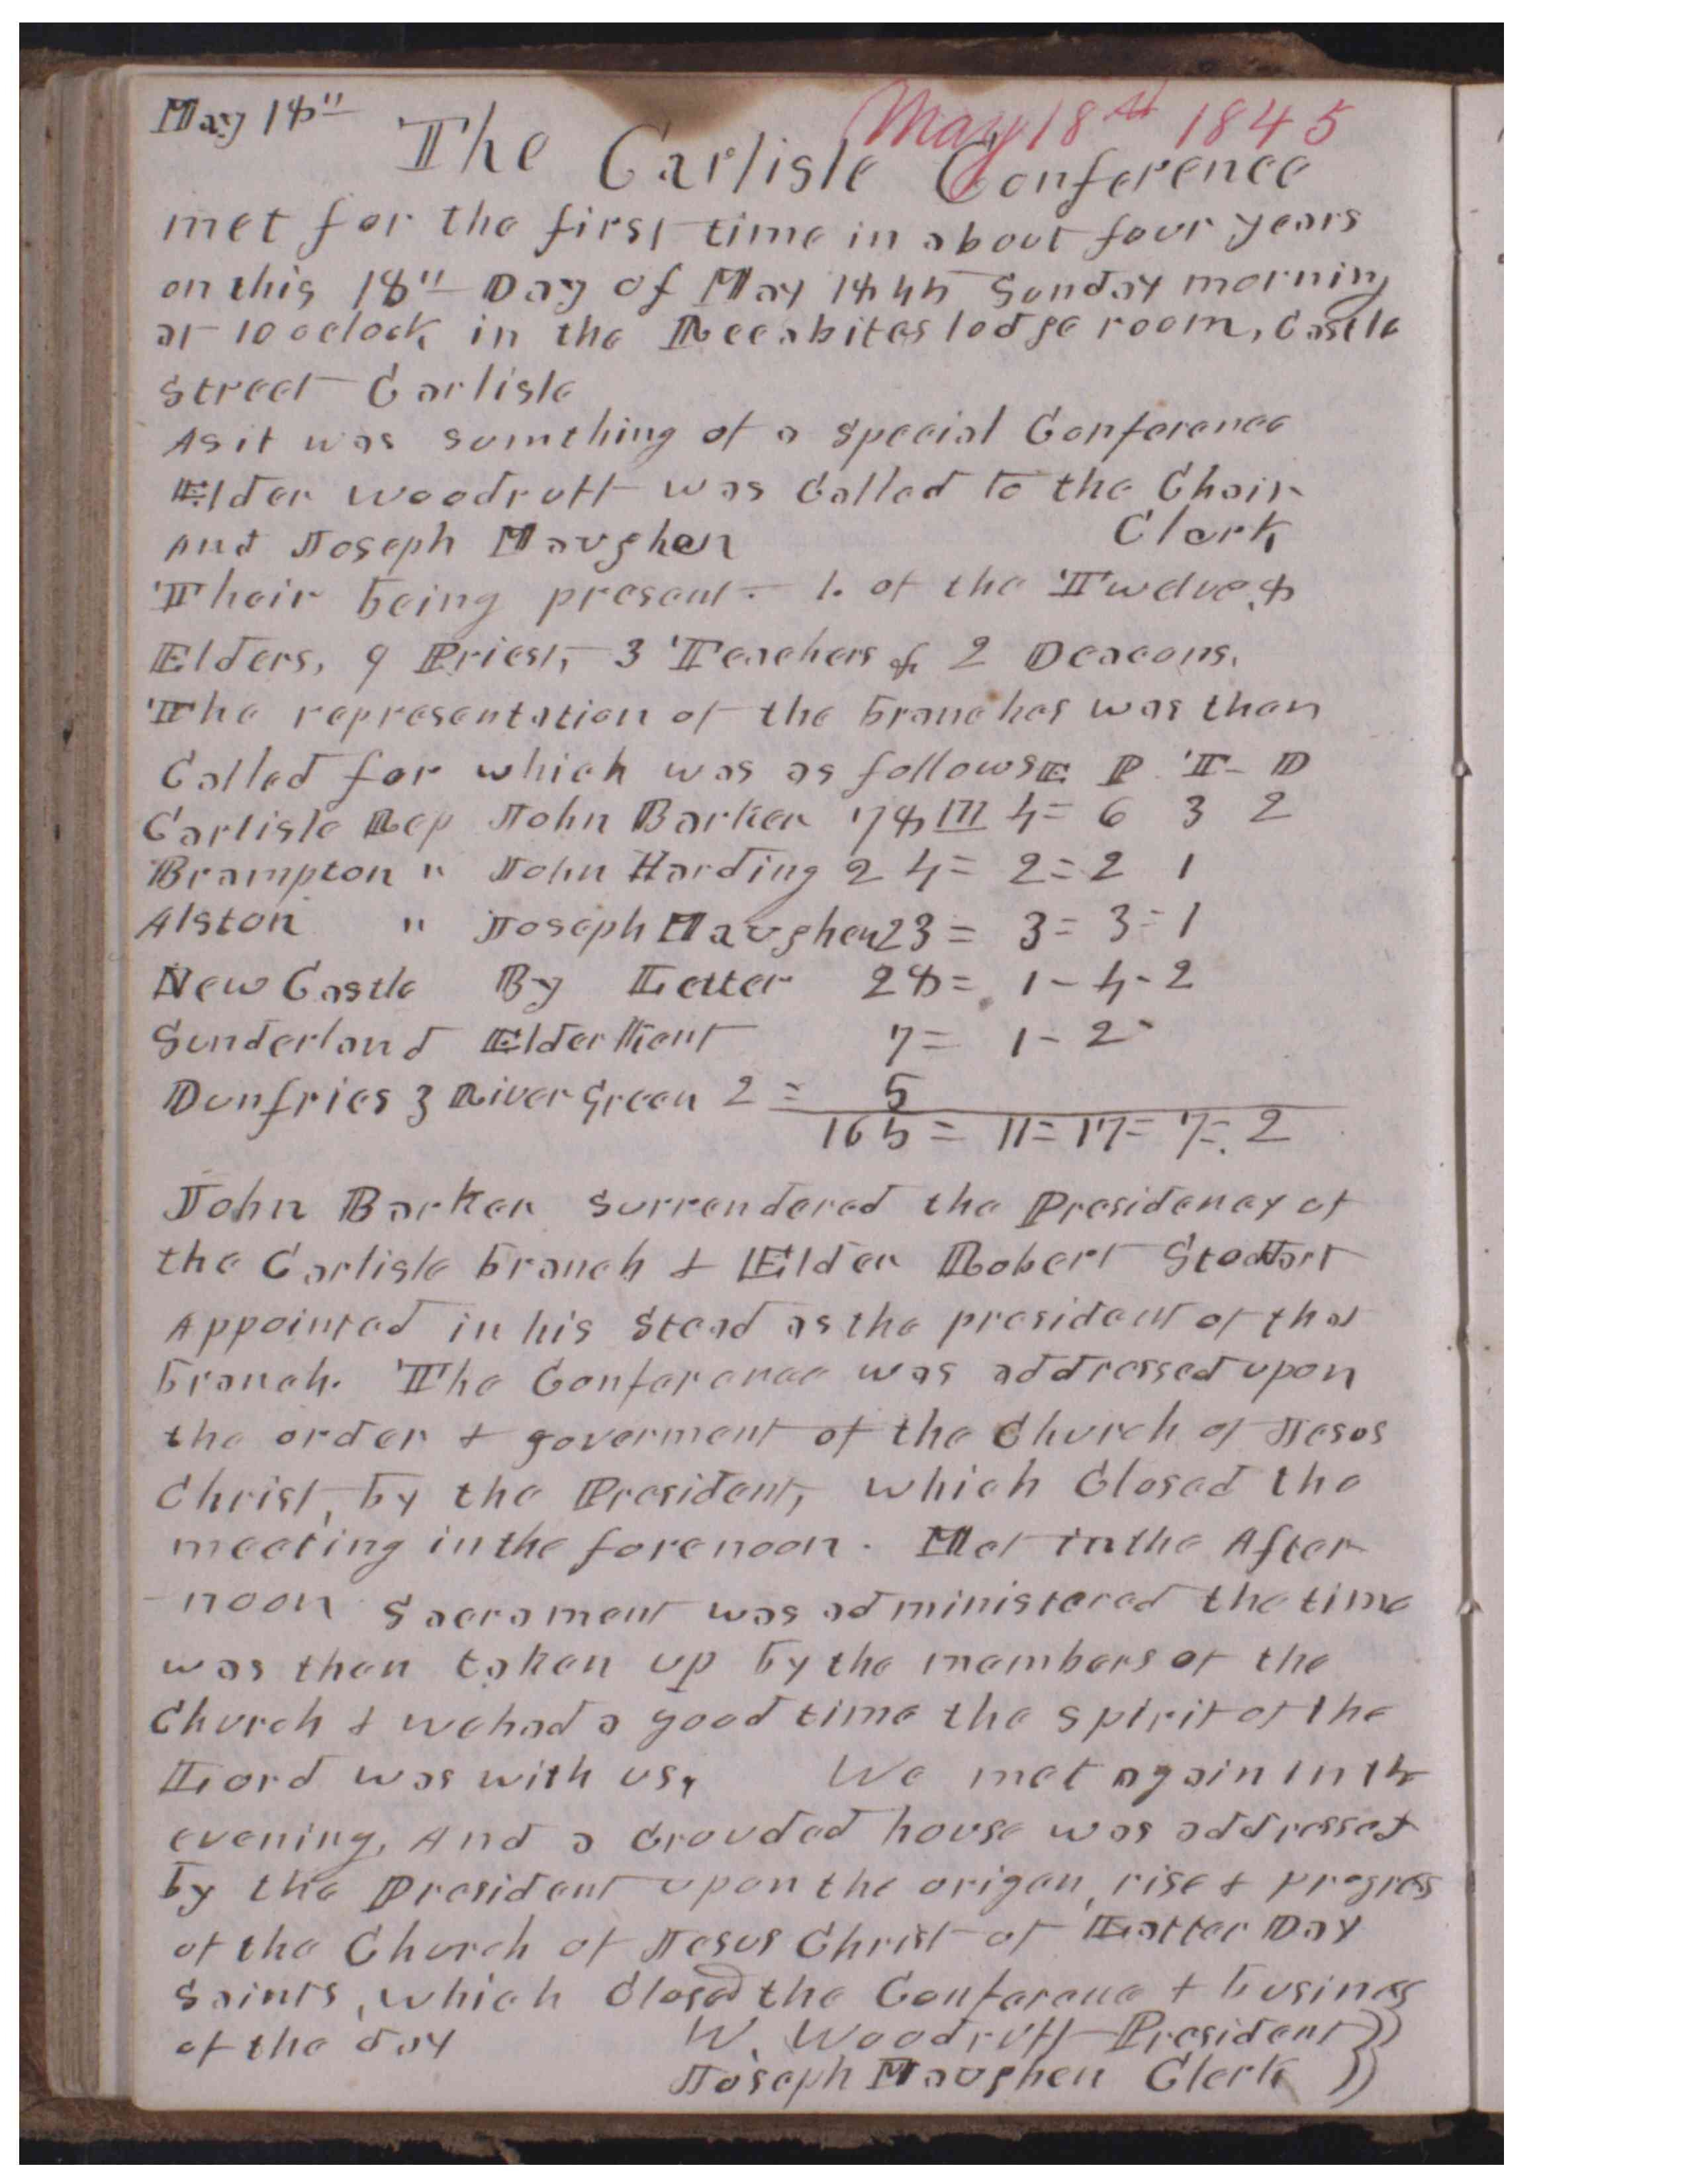 May 18th
May 18th 1845
The Carlisle Conference
met for the first time in about four years
on this 18" Day of May 1845 Sunday morning
at 10 oclock in the Recabites lodge room, Castle
Street Carlisle
As it was sumthing of a special Conference
Elder Woodruff was Called to the Chair
And Joseph Maughen Clerk
Their being present 1. of the Twelve, 8
Elders, 9 Priest, 3 Teachers & 2 Deacons.
The representation of the branches was then
Called for which was as follows E P T D
Carlisle Rep John Barker 78 m 4= 6 3 2
Brampton " John Harding 24= 2=2 1
Alston " Joseph Maughen 23= 3=3=1
New Castle By Letter 28= 1-4-2
Sunderland Elder Kent 7= 1-2
Dunfries & River Green 2= 5
165= 11=17=7=2
John Barker Surrendered the Presidency of
the Carlisle branch & Elder Robert Stodart
Appointed in his Stead as the president of that
branch. The Conference was addressed upon
the order & goverment of the Church of Jesus
Christ, by the President, which Closed the
meeting in the forenoon. Met in the After
-noon Sacrament was administered the time
was then taken up by the members of the
Church & we had a good time the spirit of the
Lord was with us, We met again in the
evening, And a Crouded house was addressed
by the President upon the origen, rise & progress
of the Church of Jesus Christ of Latter Day
Saints, which Closed the Conference & business
of the day W. Woodruff President
Joseph Maughen Clerk